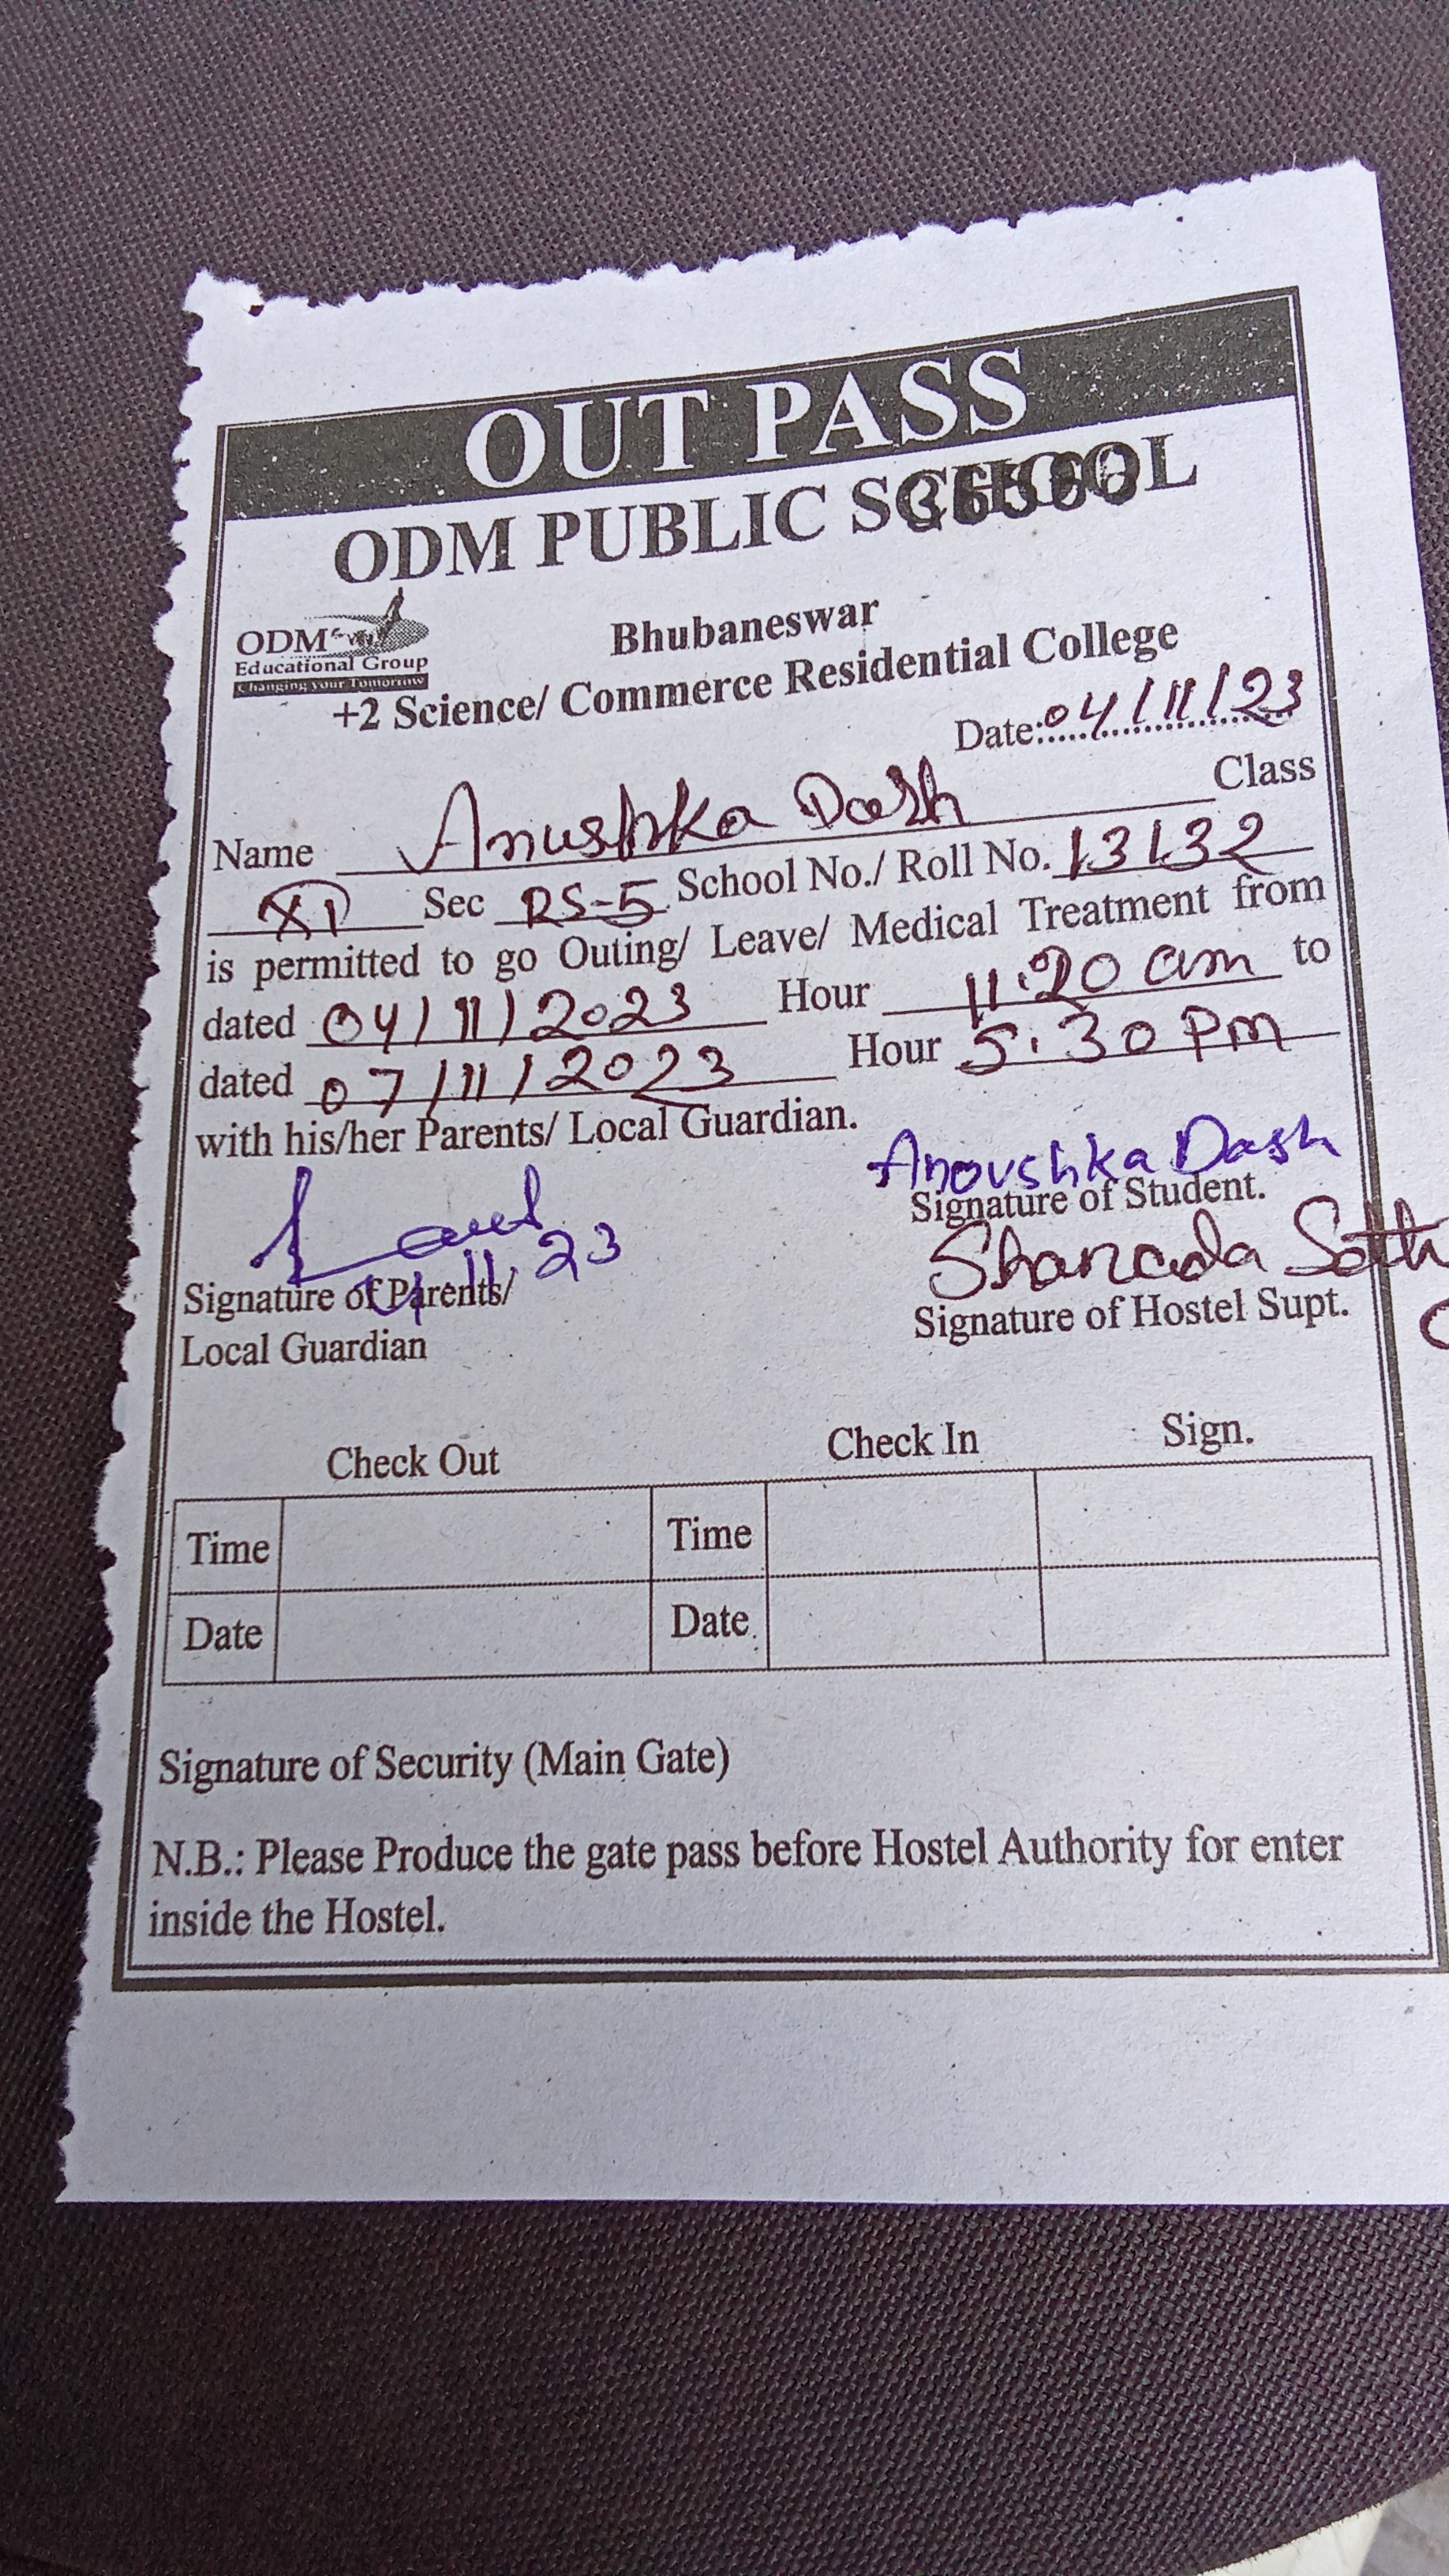 OUT PASS
ODM PUBLIC SCHOOL
ODM
Educational Group
Changing your Tomorrow
Bhubaneswar
+2 Science/ Commerce Residential College
Date: 04/11/23
Name Anushka Dash Class
XI Sec RS-5 School No./ Roll No. 13132
is permitted to go Outing/ Leave/ Medical Treatment from
dated 04/11/2023 Hour 11.20 am to
dated 07/11/2023 Hour 5.30 PM
with his/her Parents/ Local Guardian.
Anoushka Dash
Signature of Student.
4.11.23
Signature of Parents/
Local Guardian
Signature of Hostel Supt.
Check Out Check In Sign.
Time Time
Date Date
Signature of Security (Main Gate)
N.B.: Please Produce the gate pass before Hostel Authority for enter
inside the Hostel.